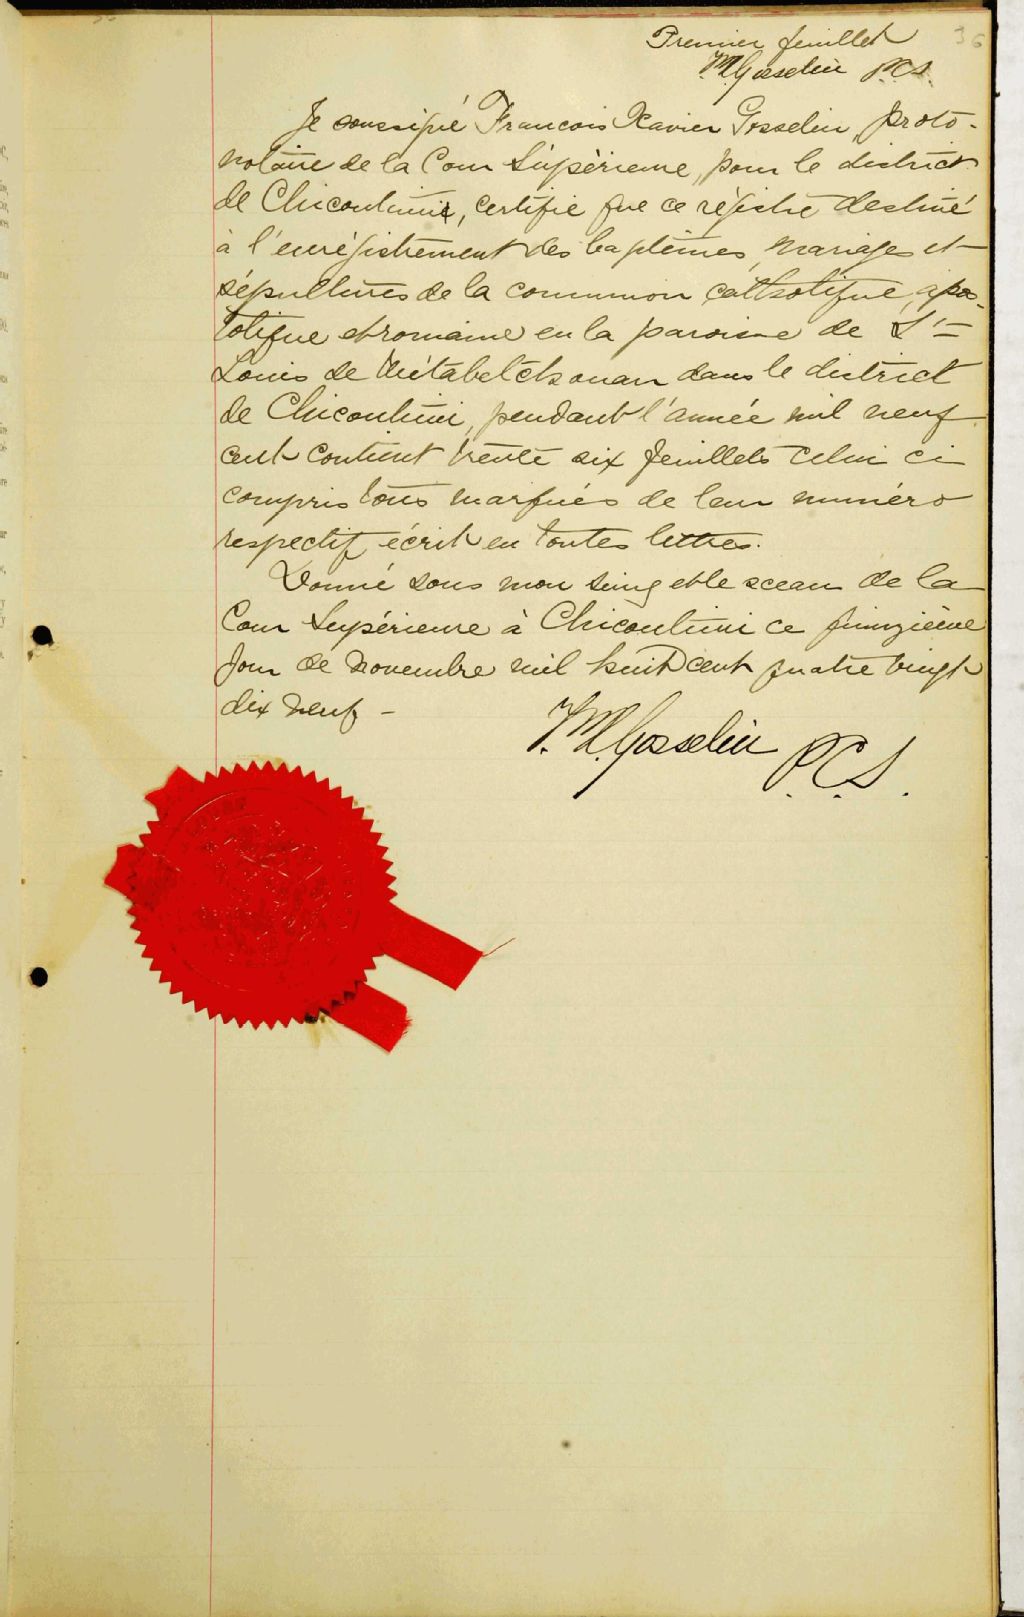 Premier feuillet
F. X. Gosselin P.C.S.
36
Je soussigné Francois Xavier Gosselin, proto-
notaire de la Cour Supérieure, pour le district
de Chicoutimi, certifie que ce régistre destiné
à l'enrégistrement des baptêmes, mariages et
sépultures de la communion catholique, apos-
tolique et romaine en la paroisse de St
Louis de Métabetchouan dans le district
de Chicoutimi, pendant l'année mil neuf
cent contient trente six feuillets celui ci
compris tous marqués de leur numéro
respectif, écrit en toutes lettres.
Donné sous mon seing et le sceau de la
Cour Supérieure à Chicoutimi ce quinzième
jour de Novembre mil huit cent quatre vingt
dix neuf -
F. X. Gosselin P.C.S.